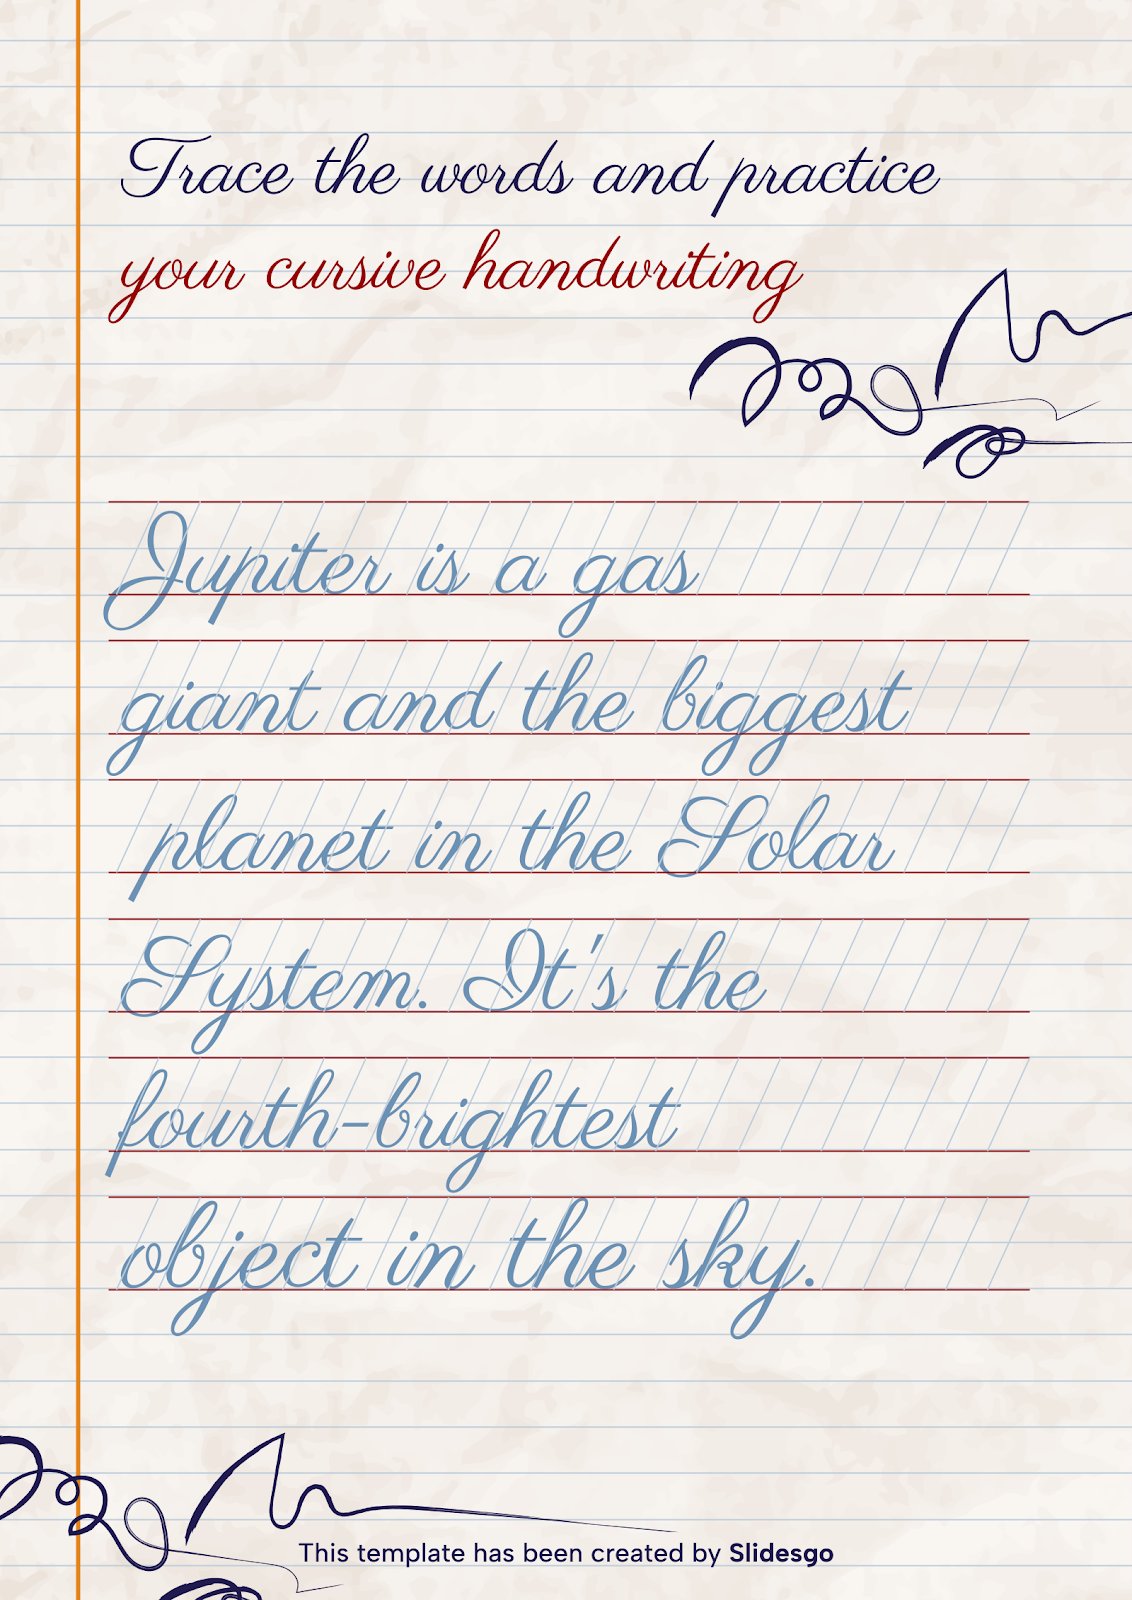 Trace the words and practice
your cursive handwriting
Jupiter is a gas
giant and the biggest
planet in the Solar
System. It's the
fourth-brightest
object in the sky.
This template has been created by Slidesgo